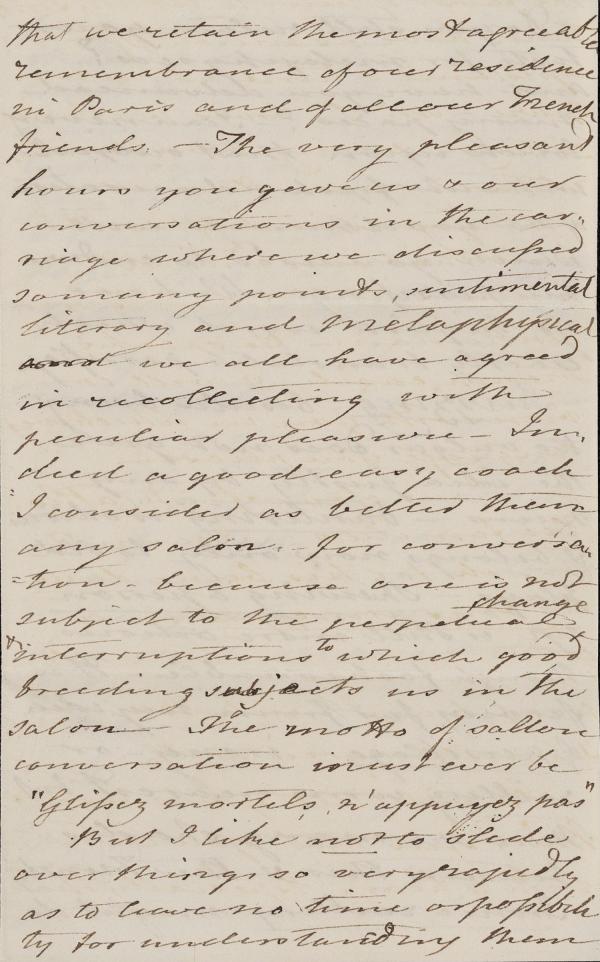 that we retain the most agreeable
remembrance of our residence
in Paris and of all our French
friends. – The very pleasant
hours you gave us & our
conversations in the car-
riage where we discussed
so many points, sentimental
literary and metaphysical
we all have agreed
in recollecting with
peculiar pleasure – In-
deed a good easy coach
I consider as better than
any salon – for conversa
=tion – because one is not
subject to the perpetual change
& interruptions to which good
breeding subjects us in the
salon – The motto of saloon
conversation must ever be
"Glissez mortels, n'appuyez pas"
But I like not to slide
over things so very rapidly
as to leave no time or possibili
ty for understanding them